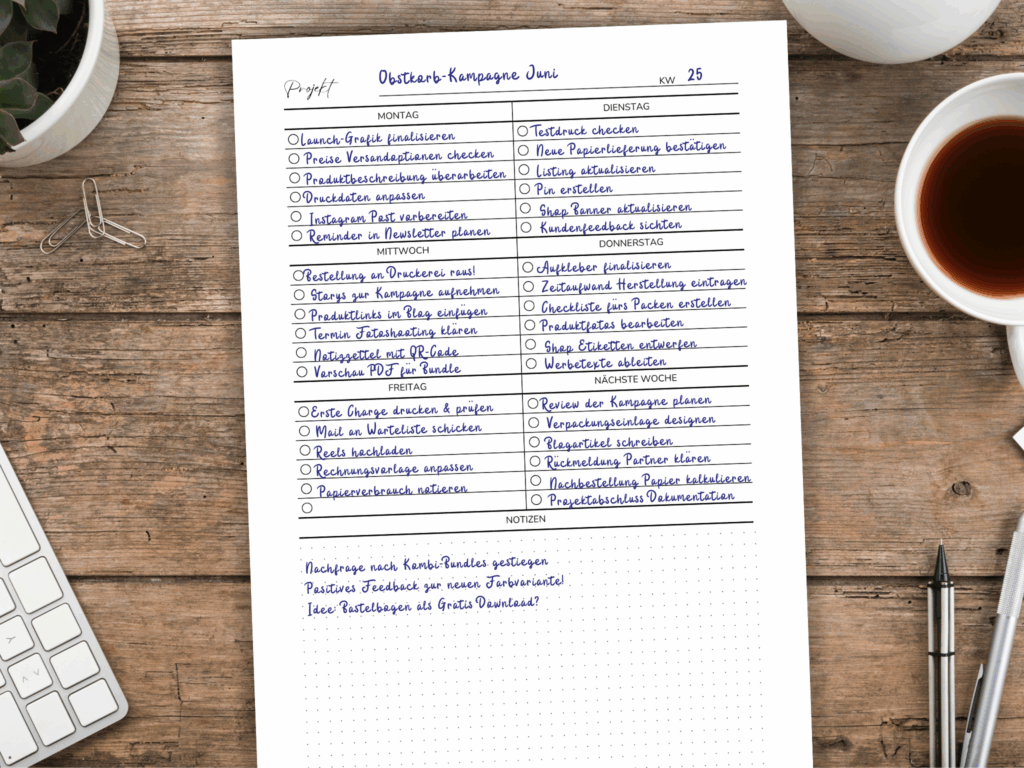 Projekt Obstkorb-Kampagne Juni KW 25
MONTAG
Launch-Grafik finalisieren
Preise Versandoptionen checken
Produktbeschreibung überarbeiten
Druckdaten anpassen
Instagram Post vorbereiten
Reminder in Newsletter planen
DIENSTAG
Testdruck checken
Neue Papierlieferung bestätigen
Listing aktualisieren
Pin erstellen
Shop Banner aktualisieren
Kundenfeedback sichten
MITTWOCH
Bestellung an Druckerei raus!
Storys zur Kampagne aufnehmen
Produktlinks im Blog einfügen
Termin Fotoshooting klären
Notizzettel mit QR-Code
Vorschau PDF für Bundle
DONNERSTAG
Aufkleber finalisieren
Zeitaufwand Herstellung eintragen
Checkliste fürs Packen erstellen
Produktfotos bearbeiten
Shop Etiketten entwerfen
Werbetexte ableiten
FREITAG
Erste Charge drucken & prüfen
Mail an Warteliste schicken
Reels hochladen
Rechnungsvorlage anpassen
Papierverbrauch notieren
NÄCHSTE WOCHE
Review der Kampagne planen
Verpackungseinlage designen
Blogartikel schreiben
Rückmeldung Partner klären
Nachbestellung Papier kalkulieren
Projektabschluss Dokumentation
NOTIZEN
Nachfrage nach Kombi-Bundles gestiegen
Positives Feedback zur neuen Farbvariante!
Idee: Bastelbogen als Gratis Download?